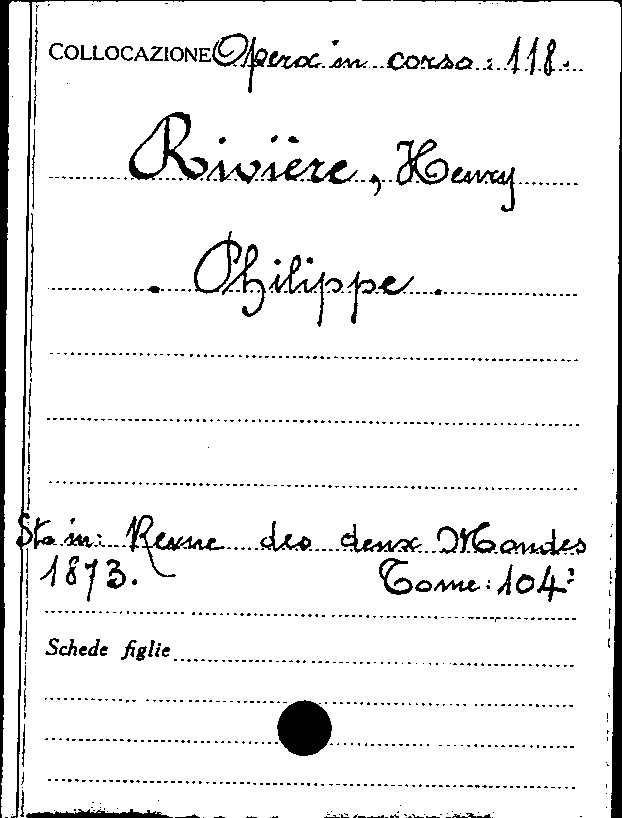 COLLOCAZIONE Opera in corso: 118.
Rivière, Henry
. Philippe .
Sta in: Revue des deux Mondes
1873. Tome: 104º
Schede figlie